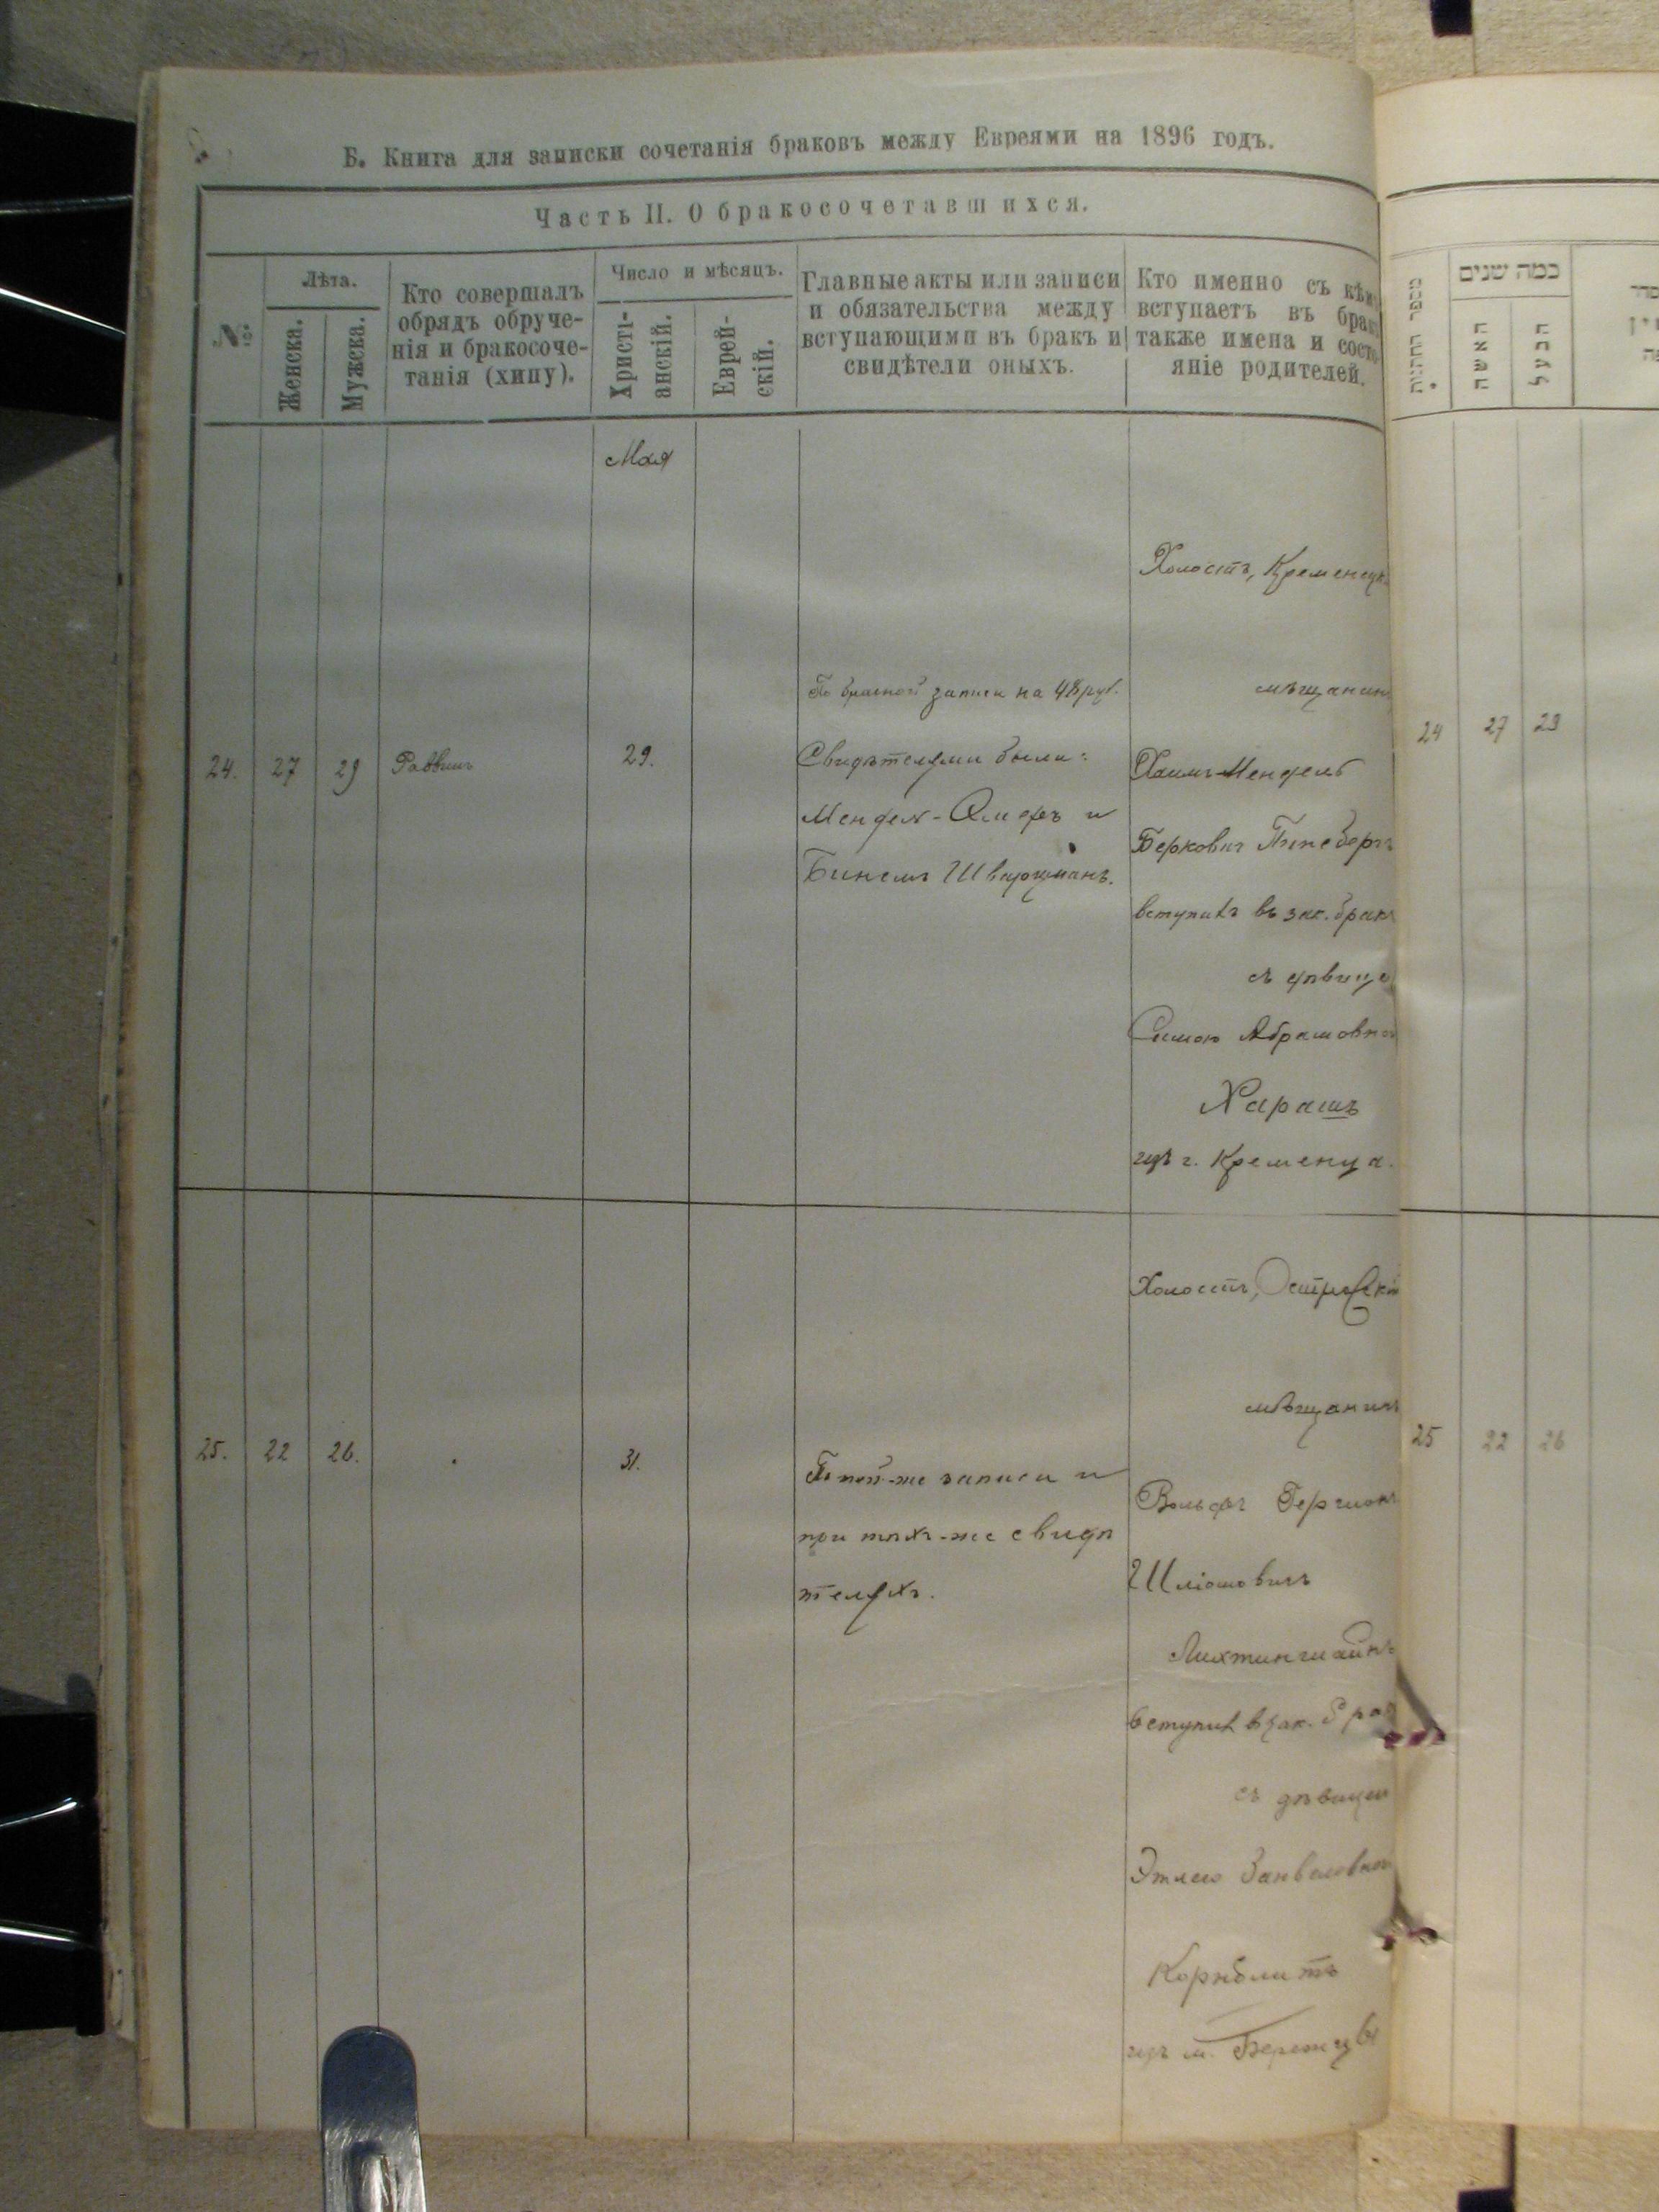 Б. Книга для записки сочетанія браковъ между Евреями на 1896 годъ.
Часть II. О бракосочетавшихся.
№
Лѣта.
Женска.
Мужска.
Кто совершалъ
обрядъ обруче-
нія и бракосоче-
танія (хипу).
Число и мѣсяцъ.
Христі-
анскій.
Еврей-
скій.
Главные акты или записи
и обязательства между
вступающими въ бракъ и
свидѣтели оныхъ.
Кто именно съ кѣмъ
вступаетъ въ бракъ
также имена и состо-
яніе родителей.
מספר החתנות
כמה שנים
האשה
הבעל
Мая
24.
27
29
Раввинъ
29.
По брачной записи на 48 руб.
Свидѣтелями были:
Мендель- и
Бинемъ Шварцманъ.
Холостъ, Кременецк.
мѣщанинъ
Хаимъ-Мендель
Берковичъ
вступилъ въ зак. бракъ
съ дѣвицею
Симою Абрамовной
Харашъ
изъ г. Кременца.
24
27
29
25.
22
26.
31.
По той-же записи и
при тѣхъ-же свидѣ
теляхъ.
Холостъ,
мѣщанинъ
Вольфъ Гершонъ
Шліомовичъ
Лихтинштайнъ
вступилъ въ зак. брак
съ дѣвицею
Этлею Занвеловной
Корнблитъ
изъ м. Бережцы
25
22
26